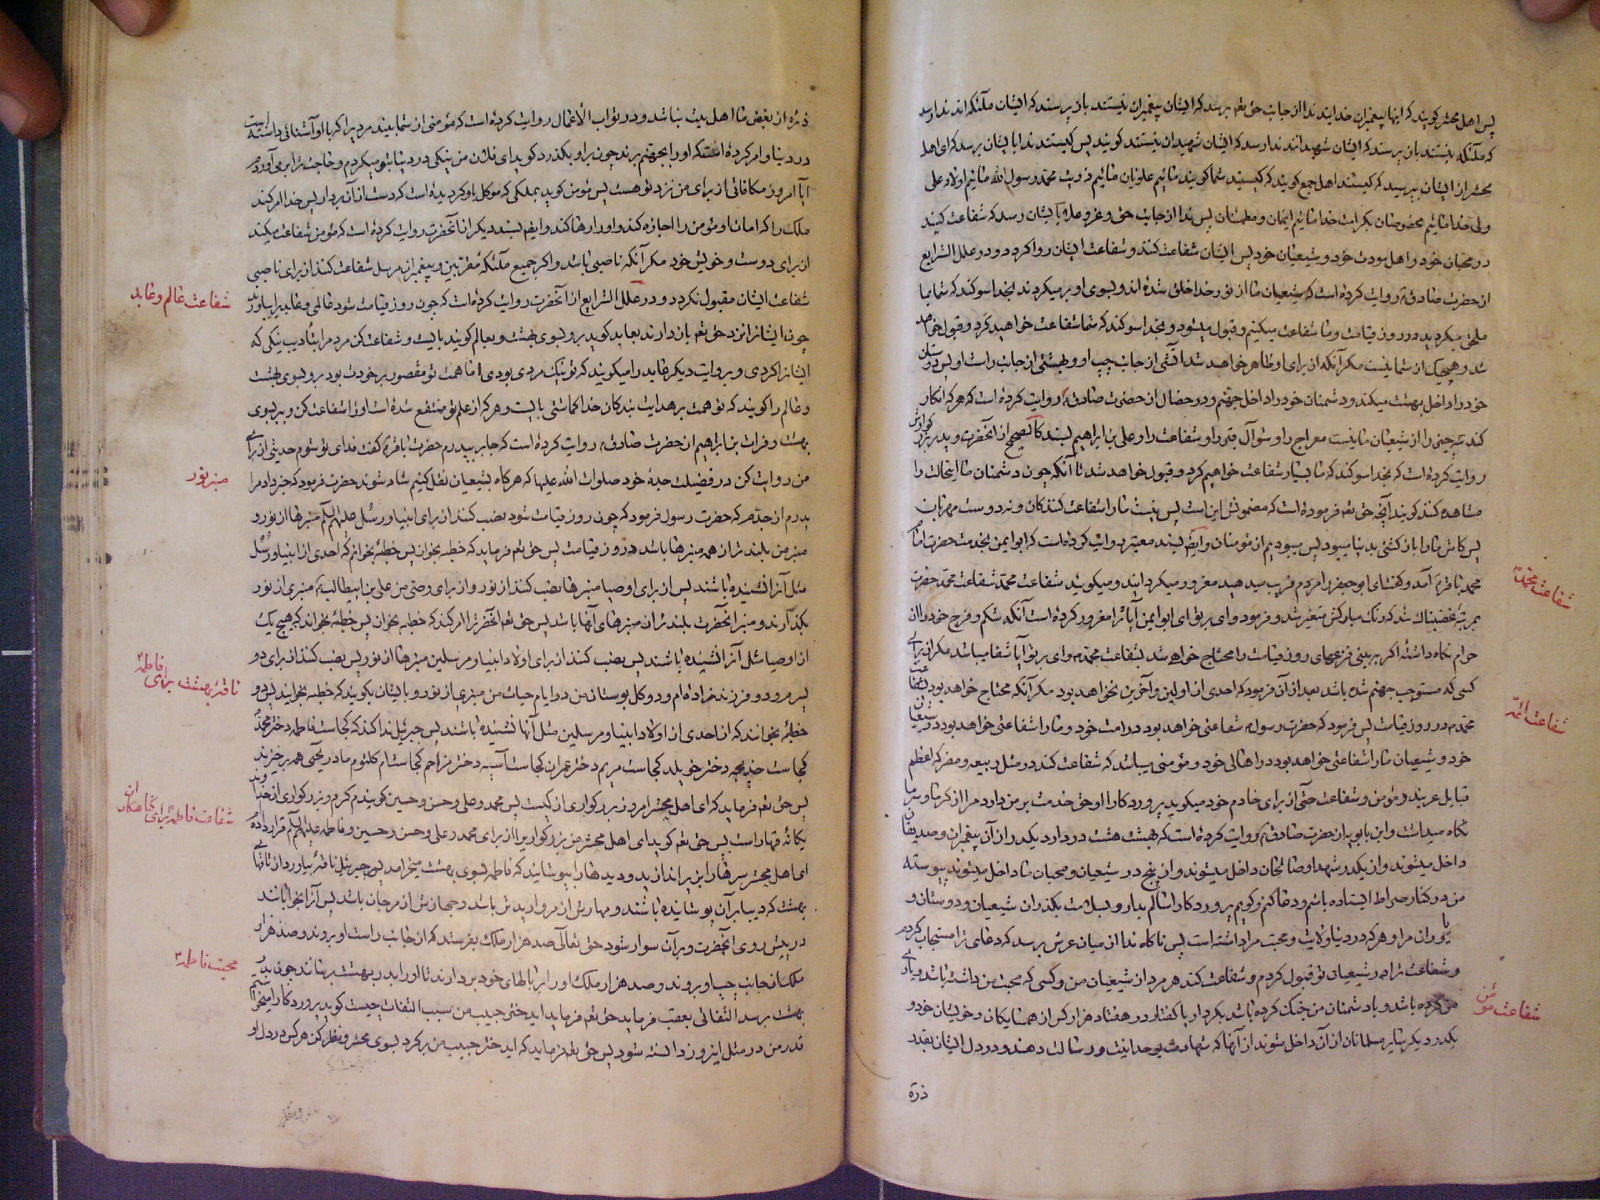 پس اهل محشر گویند که اینها پیغمبران خدایند ندا از جانب حق تعالی برسد که ایشان پیغمبران نیستند باز پرسند که ایشان ملئکه اند ندا رسد
که ملئکه نیستند باز پرسند که ایشان شهیدانند ندا رسد که ایشان شهیدان نیستند گویند پس کیستند ندا بایشان برسد که ای اهل
محشر از ایشان بپرسید که کیستند اهل جمع گویند که کیستید شما گویند مائیم علویان مائیم ذریت محمد رسول الله مائیم اولاد علی
ولی خدا مائیم مخصوصان بکرامت خدا مائیم ایمنان و مطمئنان پس ندا از جانب حق عز و علا بایشان رسد که شفاعت کنید
در محبان خود و اهل مودت خود و شیعیان خود پس ایشان شفاعت کنند و شفاعت ایشان روا گردد و در علل الشرایع
از حضرت صادق روایت کرده است که شیعیان ما از نور خدا خلق شده اند و بسوی او برمیگردند بخدا سوگند که شما بما
ملحق میگردید در روز قیامت و ما شفاعت میکنیم و قبول میشود و بخدا سوگند که شما شفاعت خواهید کرد و قبول خواهد
شد و هیچیک از شما نیست مگر آنکه از برای او ظاهر خواهد شد آتشی از جانب چپ او و بهشتی از جانب راست او پس دوستان
خود را داخل بهشت میکند و دشمنان خود را داخل جهنم و در خصال از حضرت صادق روایت کرده است که هر که انکار
کند سه چیز را از شیعیان ما نیست معراج را و سؤال قبر را و شفاعت را و علی بن ابراهیم بسند کالصحیح از آنحضرت و پدر بزرگوارش
روایت کرده است که بخدا سوگند که ما بسیار شفاعت خواهیم کرد و قبول خواهد شد تا آنکه چون دشمنان ما اینحالت را
مشاهده کنند گویند آنچه حق تعالی فرموده است که مضمونش این است پس نیست ما را شفاعت کنندگان و نه دوست مهربان
پس کاش ما را بازگشتی بدنیا میبود پس میبودیم از مؤمنان و ایضا بسند معتبر روایت کرده است که ابو ایمن بخدمت حضرت امام
محمد باقر آمد و گفت ای ابو جعفر مردم را فریب میدهید مغرور میگردانید و میگویید شفاعت محمد شفاعت محمد حضرت
بمرتبه غضبناک شد که رنگ مبارکش متغیر شد و فرمود وای بر تو ای ابو ایمن آیا ترا مغرور کرده است آنکه شکم و فرج خود را از
حرام نگاه داشته اگر به بینی فزعهای روز قیامت را محتاج خواهی شد بشفاعت محمد وای بر تو آیا شفاعت میباشد مگر از برای
کسی که مستوجب جهنم شده باشد بعد از آن فرمود که احدی از اولین و آخرین نخواهد بود مگر آنکه محتاج خواهد بود بشفاعت
محمد در روز قیامت پس فرمود که حضرت رسول شفاعتی خواهد بود در امت خود و ما را شفاعتی خواهد بود در شیعیان
خود و شیعیان ما را شفاعتی خواهد بود در اهالی خود و مؤمنی میباشد که شفاعت کند در مثل ربیعه و مضر که اعظم
قبایل عربند و مؤمن شفاعت حتی از برای خادم خود میکوید پروردگارا او حق خدمت بر من دارد مرا از گرما و سرما
نگاه میداشت و ابن بابویه از حضرت صادق روایت کرده است که بهشت هشت در دارد یکدر از آن پیغمبران و صدیقان
داخل میشوند و از یکدر شهدا و صالحان داخل میشوند و از پنج در شیعیان و محبان ما داخل میشوند پیوسته
من در کنار صراط ایستاده باشم و دعا کنم و گویم پروردگارا سالم بدار و بسلامت بگذران شیعیان و دوستان و
یاوران مرا و هر که در دنیا ولایت و محبت مرا داشته است پس ناگاه ندا از میان عرش برسد که دعای ترا مستجاب کردم
و شفاعت ترا در شیعیان تو قبول کردم و شفاعت کند هر مرد از شیعیان من و کسی که محبت من داشته باشد و یاری
من کرده باشد و با دشمنان من جنگ کرده باشد بکردار یا گفتار در هفتاد هزار کس از همسایگان و خویشان خود و
یکدر دیگر سایر مسلمانان از آن داخل شوند از آنها که شهادت بوحدانیت و رسالت دهند و در دل ایشان بقدر
ذره
شفاعت محمد
شفاعت ائمه
شفاعت مؤمن
ذره از بغض ما اهل بیت نباشد و در ثواب الاعمال روایت کرده است که مؤمنی از شما ببیند مردی را که با او آشنائی داشته است
در دنیا و امر کرده است که او را بجهنم برند چون بر او بگذرد گوید ای فلان من نیکی در دنیا بتو میکردم و حاجت ترا برمی آوردم
آیا امروز مکافاتی از برای من نزد تو هست پس مؤمن گوید بملکی که موکل باو گردیده است که دست از آن بردار پس خدا امر کند
ملک را که امان او مؤمن را اجازه کند و او را رها کند و ایضا بسند دیگر از آنحضرت روایت کرده است که مؤمن شفاعت میکند
از برای دوست و خویش خود مگر آنکه ناصبی باشد و اگر جمیع ملئکه مقربین و پیغمبران مرسل شفاعت کنند از برای ناصبی
شفاعت ایشان مقبول نگردد و در علل الشرایع از آنحضرت روایت کرده است که چون روز قیامت شود عالمی و عابدیرا بیاورند
چون ایشانرا نزد حق تعالی باز دارند بعابد گویند برو بسوی بهشت و بعالم گویند بایست و شفاعت کن مردم را بتأدیب نیکی که
ایشانرا کردی و بروایت دیگر عابد را میگویند که تو نیک مردی بودی اما همت تو مقصور بر خودت بود برو بسوی بهشت
و عالم را گویند که تو همت بر هدایت بندگان خدا گماشتی بایست و هر که از علم تو منتفع شده است او را شفاعت کن و ببر بسوی
بهشت و فرات بن ابراهیم از حضرت صادق روایت کرده است که جابر بپدرم حضرت باقر گفت فدای تو شوم حدیثی از برای
من روایت کن در فضیلت جده خود صلوات الله علیها که هر گاه بشیعیان نقل کنیم شاد شوند حضرت فرمود که خبر داد مرا
پدرم از جدم که حضرت رسول فرمود که چون روز قیامت شود نصب کنند از برای انبیا و رسل علیهم السلام منبرها از نور و
منبر من بلندتر از همه منبرها باشد در روز قیامت پس حق تعالی فرماید که خطبه بخوان پس خطبه بخوانم که احدی از انبیا و رسل
مثل آنرا نشنیده باشند پس از برای اوصیا منبرها نصب کنند از نور و از برای وصی من علی بن ابیطالب منبری از نور
بگذارند و منبر آنحضرت بلندتر از منبرهای آنها باشد پس حق تعالی آنحضرترا امر کند که خطبه بخوان پس خطبه بخواند که هیچ یک
از اوصیا مثل آنرا نشنیده باشند پس نصب کنند از برای اولاد انبیا و مرسلین منبرها از نور پس نصب کنند از برای دو
پسر و دو فرزندزاده ام و دو گل بوستان من در ایام حیات من منبری از نور و بایشان بگویند که خطبه بخوانید پس دو
خطبه بخوانند که از احدی از اولاد انبیا و مرسلین مثل آنها نشنیده باشند پس جبرئیل ندا کند که کجاست فاطمه دختر محمد
کجاست خدیجه دختر خویلد کجاست مریم دختر عمران کجاست آسیه دختر مزاحم کجاست ام کلثوم مادر یحیی همه برخیزند
پس حق تعالی فرماید که ای اهل محشر امروز بزرگواری از کیست پس محمد و علی و حسن و حسین گویند کرم و بزرگواری از خداوند
یگانه قهار است پس حق تعالی گوید ای اهل محشر من بزرگواریرا از برای محمد و علی و حسن و حسین و فاطمه علیهم السلام قرار داده
ام اهل محشر سرها را بزیر اندازید و دیدها را بپوشانید که فاطمه بسوی بهشت میخرامد پس جبرئیل ناقه بیاورد از ناقهای
بهشت که دیبا بر آن پوشانیده باشند و مهارش از مروارید تر باشد و جهازش از مرجان باشد پس آنرا بخواباند
در پیش روی آنحضرت و بر آن سوار شود حق تعالی صد هزار ملک بفرستد که از جانب راست او بروند و صد هزار
ملک از جانب چپ او بروند و صد هزار ملک او را بر بالهای خود بردارند تا او را بدر بهشت برسانند چون بدر
بهشت برسد التفاتی بعقب فرماید حق تعالی فرماید ای دختر حبیب من سبب التفات چیست گوید پروردگارا میخواستم
قدر من در مثل این روز دانسته شود پس حق تعالی فرماید که ای دختر حبیب من برگرد بسوی محشر و نظر کن هر که در دل او
شفاعت عالم و عابد
منبر نور
ناقه بهشت برای فاطمه
شفاعت فاطمه برای گناهکاران
محبت فاطمه